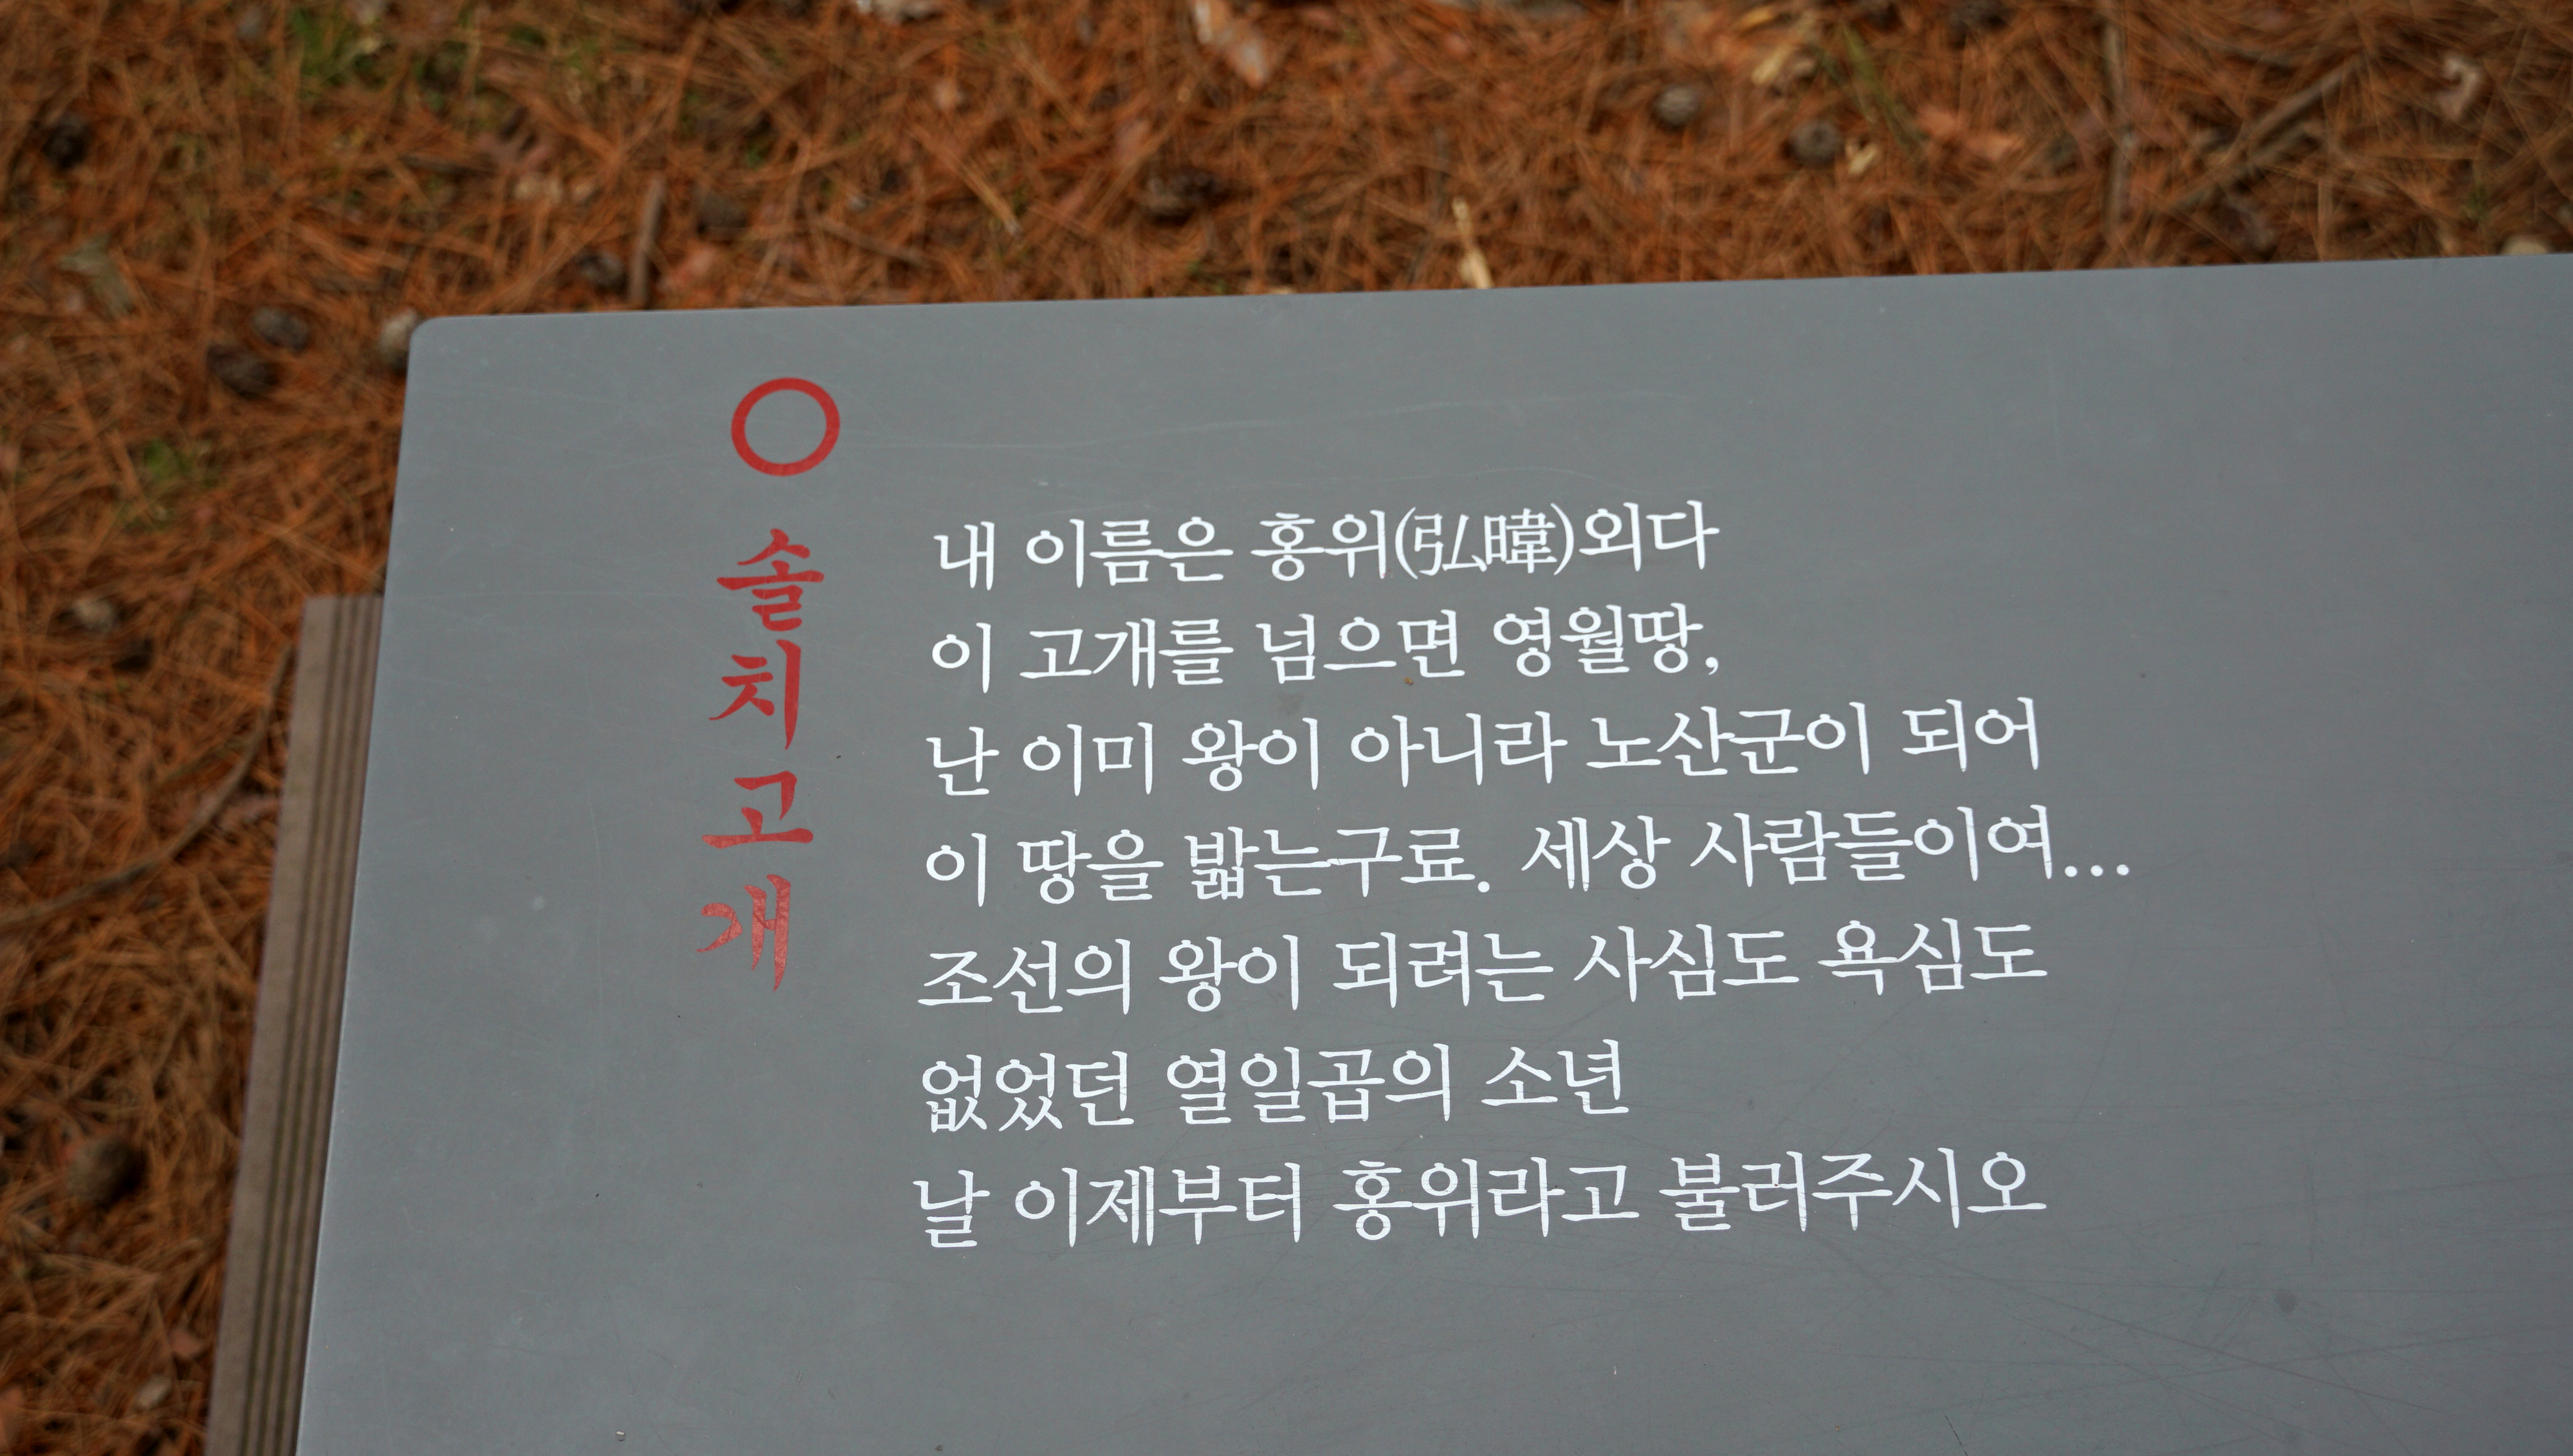 솔치고개
내 이름은 홍위(弘暐)외다
이 고개를 넘으면 영월땅,
난 이미 왕이 아니라 노산군이 되어
이 땅을 밟는구료. 세상 사람들이여...
조선의 왕이 되려는 사심도 욕심도
없었던 열일곱의 소년
날 이제부터 홍위라고 불러주시오